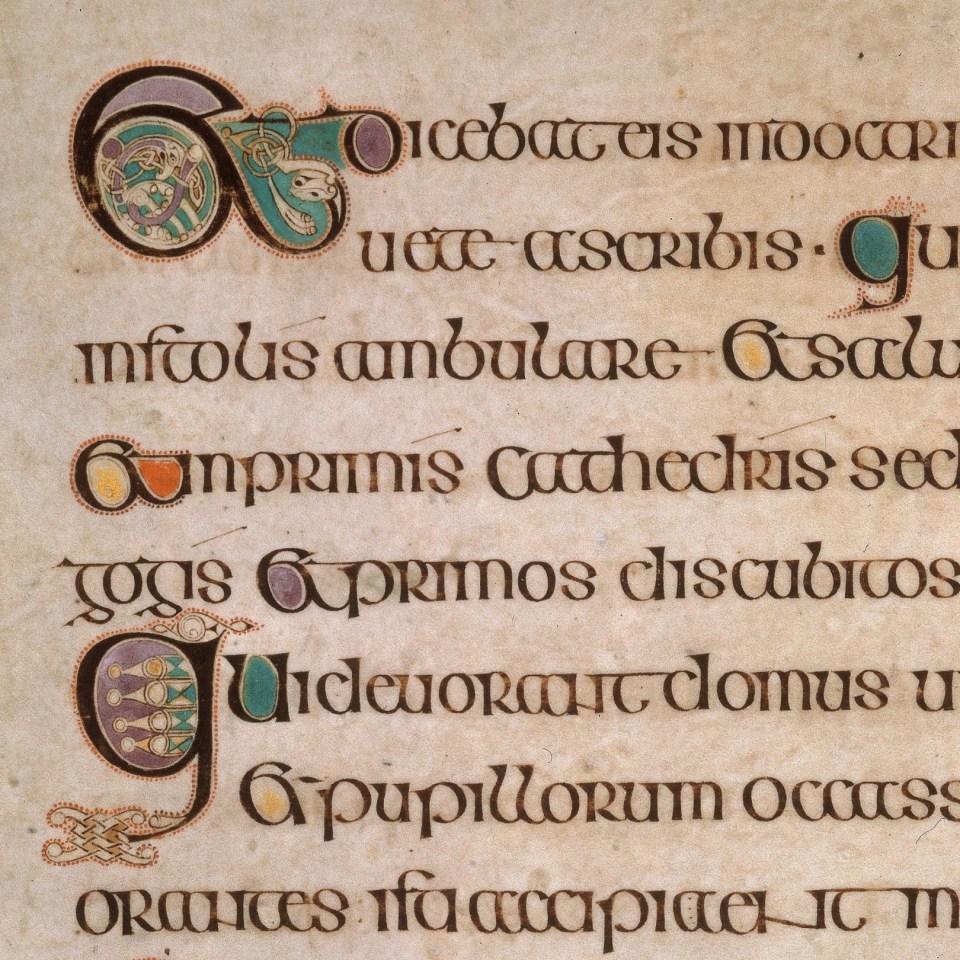 Et dicebat eis indoctri
uete ascribis · qu
instolis ambulare et salu
et inprimis cathedris sed
gogis et primos discubitos
qui deuorant domus u
et pupillorum occass
orantes isti accipient m